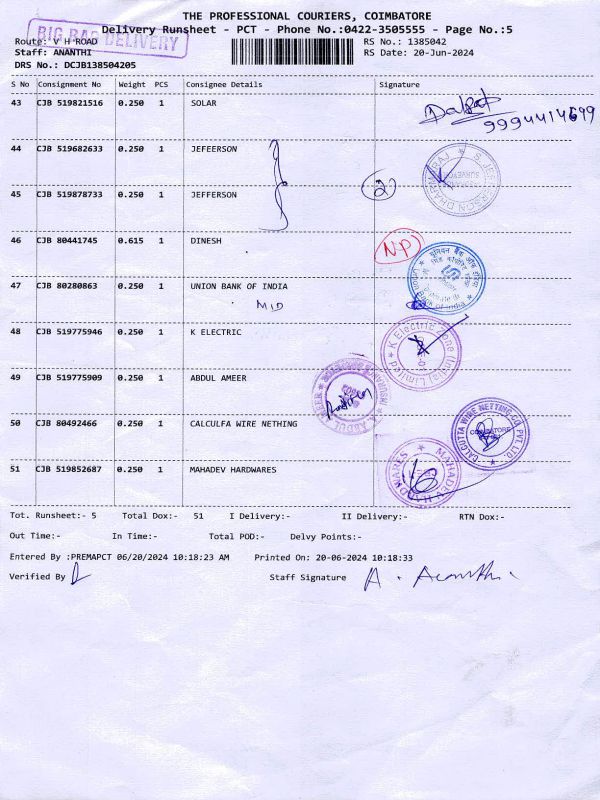 THE PROFESSIONAL COURIERS, COIMBATORE
Delivery Runsheet - PCT - Phone No.:0422-3505555 - Page No.:5
BIG BAG DELIVERY
Route: V H ROAD
RS No.: 1385042
Staff: ANANTHI
RS Date: 20-Jun-2024
DRS No.: DCJB138504205
S No Consignment No Weight PCS Consignee Details Signature
43 CJB 519821516 0.250 1 SOLAR
9994414699
44 CJB 519682633 0.250 1 JEFEERSON
45 CJB 519878733 0.250 1 JEFFERSON
2
46 CJB 80441745 0.615 1 DINESH
NP
47 CJB 80280863 0.250 1 UNION BANK OF INDIA
MID
48 CJB 519775946 0.250 1 K ELECTRIC
K Electric Zone (India) Limited
49 CJB 519775909 0.250 1 ABDUL AMEER
50 CJB 80492466 0.250 1 CALCULFA WIRE NETHING
CALCUTTA WIRE NETTING CO PVT. LTD.
51 CJB 519852687 0.250 1 MAHADEV HARDWARES
MAHADEV HARDWARES
Tot. Runsheet:- 5 Total Dox:- 51 I Delivery:- II Delivery:- RTN Dox:-
Out Time:- In Time:- Total POD:- Delvy Points:-
Entered By :PREMAPCT 06/20/2024 10:18:23 AM Printed On: 20-06-2024 10:18:33
Verified By
Staff Signature A. Ananthi